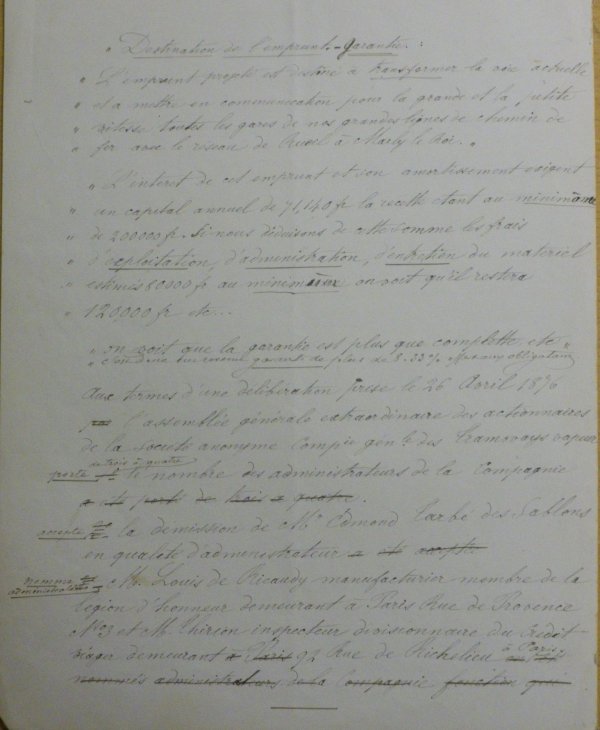 " Destination de l'emprunt-garantie :
" L'emprunt projeté est destiné à transformer la voie actuelle
" et à mettre en communication pour la grande et la petite
" vitesse toutes les gares de nos grandes lignes de chemin de
" fer avec le réseau de Rueil à Marly le Roi. "
" L'intérêt de cet emprunt et son amortissement exigent
" un capital annuel de 71,140 fr la recette étant au minimum
" de 200000 fr. Si nous déduisons de cette somme les frais
" d'exploitation, d'administration, d'entretien du matériel
" estimés 80000 fr au minimum on voit qu'il restera
" 120,000 fr etc...
" on voit que la garantie est plus que complette etc "
" c'est donc un revenu garanti de plus de 8.33% aux obligations
Aux termes d'une délibération prise le 26 Avril 1876
par l'assemblée générale extraordinaire des actionnaires
de la Société anonyme Compie génle des Tramways vapeur
de trois à quatre
porte le nombre des administrateurs de la Compagnie
a été porté de trois à quatre.
accepte la démission de Mr Edmond Tarbé des Sablons
en qualité d'administrateur a été accepté.
nomme administrateurs Mr. Louis de Ricaudy manufacturier membre de la
légion d'honneur demeurant à Paris Rue de Provence
No 3 et M. Thirion inspecteur divisionnaire du Crédit
viager demeurant à Paris 92 Rue de Richelieu à Paris
nommés administrateurs de la Compagnie fonction